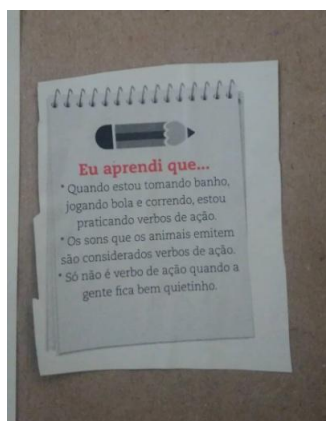 Eu aprendi que...
* Quando estou tomando banho,
jogando bola e correndo, estou
praticando verbos de ação.
* Os sons que os animais emitem
são considerados verbos de ação.
* Só não é verbo de ação quando a
gente fica bem quietinho.